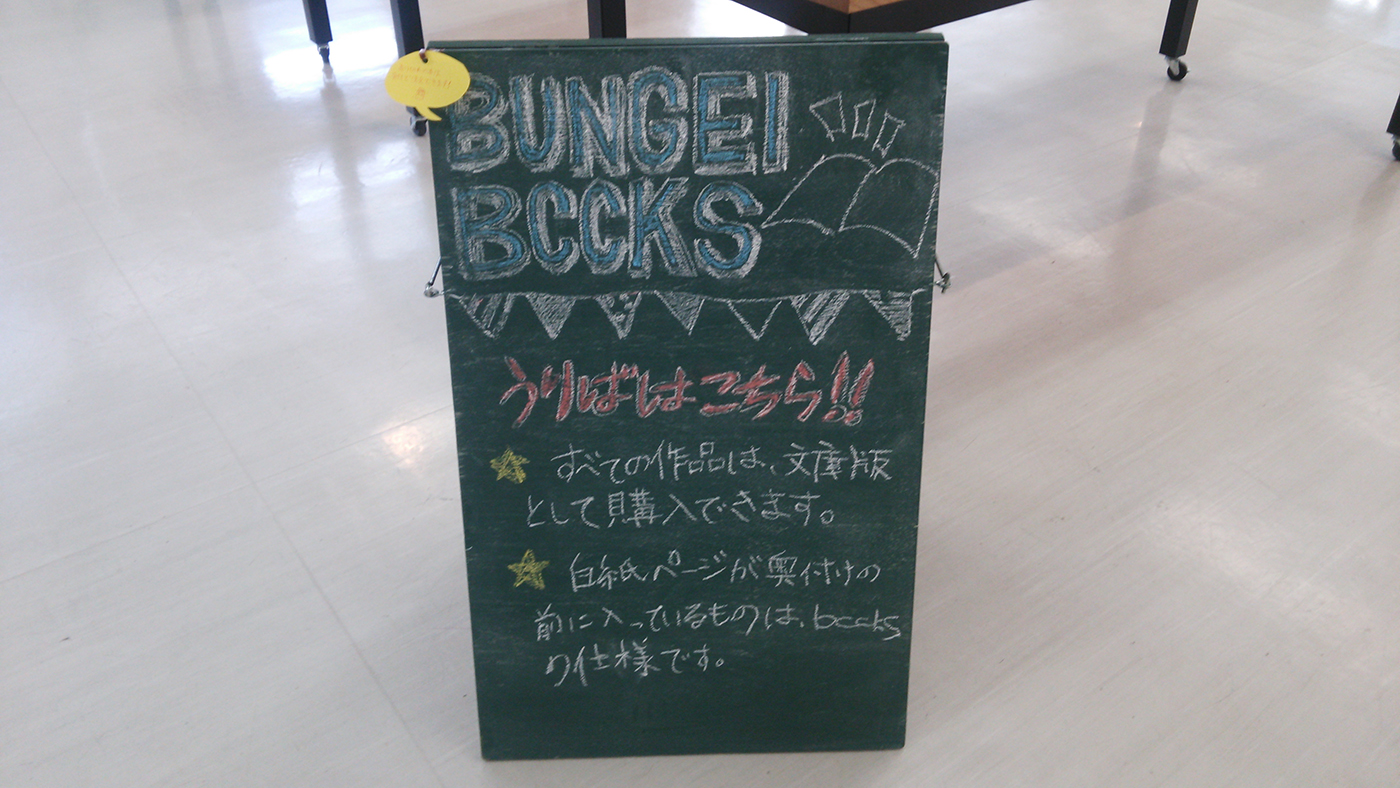 BUNGEI
BCCKS
うりばはこちら!!
すべての作品は、文庫版
として購入できます。
白紙ページが奥付けの
前に入っているものは、bccks
の仕様です。